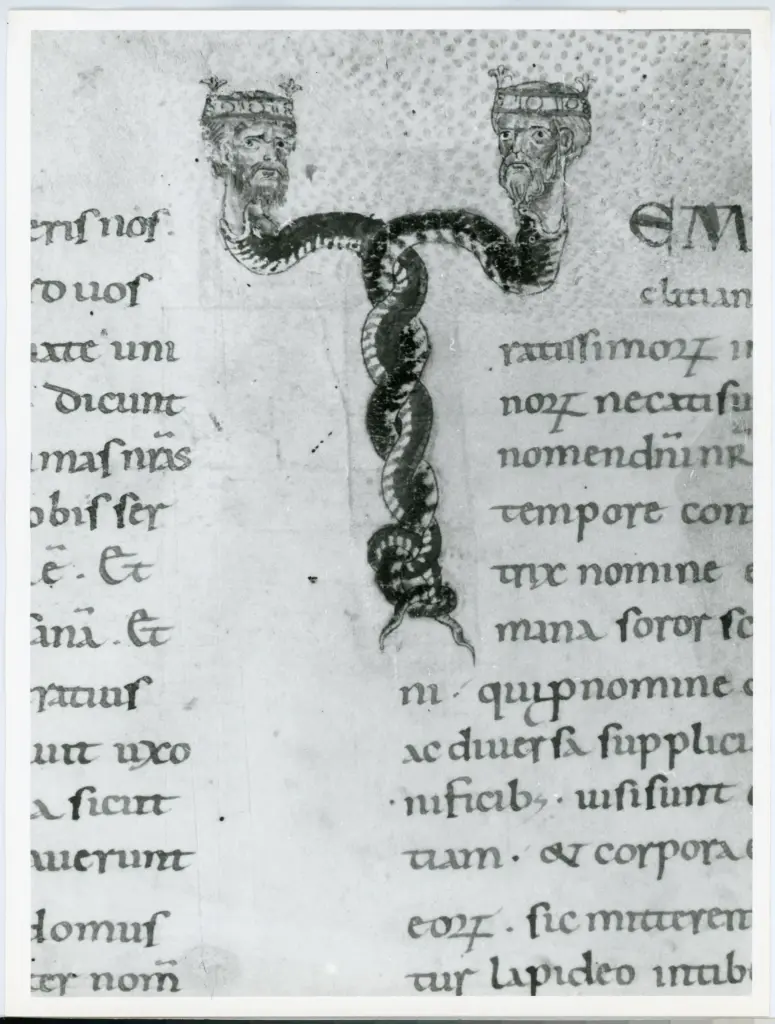 erisnos.
duos
uni
dicunt
masnr̄as
obis ser
ē. Et
ānā. Et
ratius
unt uxo
a sicut
auerunt
domus
ter nom̄
TEM
cletian
ratissimoꝝ in
noꝝ necati su
nomen dn̄i nr̄
tempore com
trix nomine
mana soror sc
ni. qui ꝓ nomine
ac diuersa supplici
nificib; uisi sunt
tiam. & corpora
eoꝝ. sic mitteren
tur lapideo intib